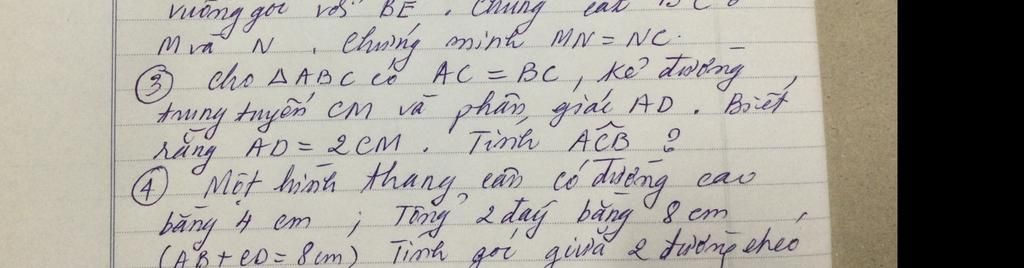 vuông góc với BE. Chúng cắt BC ở
M và N. Chứng minh MN = NC.
③ Cho △ABC có AC = BC, kẻ đường
trung tuyến CM và phân giác AD. Biết
rằng AD = 2CM. Tính ACB ?
④ Một hình thang cân có đường cao
bằng 4 cm ; Tổng 2 đáy bằng 8 cm,
(AB + CD = 8cm) Tính góc giữa 2 đường chéo